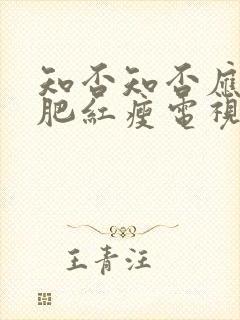 知否知否應
肥紅瘦電視
王青汪